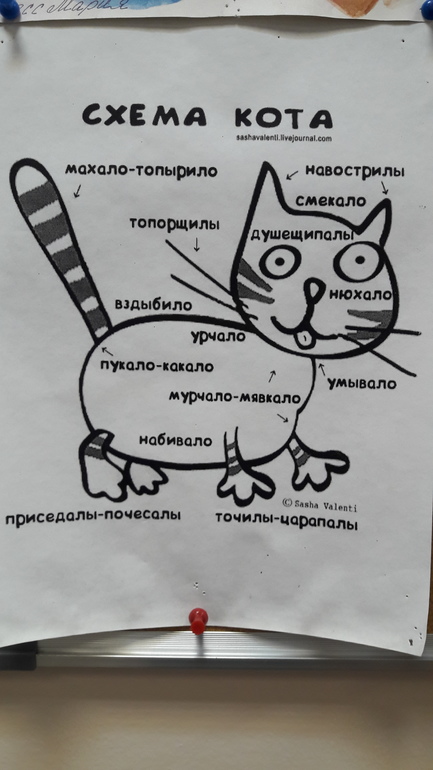 СХЕМА КОТА
sashavalenti.livejournal.com
махало-топырило
навострилы
смекало
топорщилы
душещипалы
нюхало
вздыбило
урчало
пукало-какало
умывало
мурчало-мявкало
набивало
© Sasha Valenti
приседалы-почесалы
точилы-царапалы